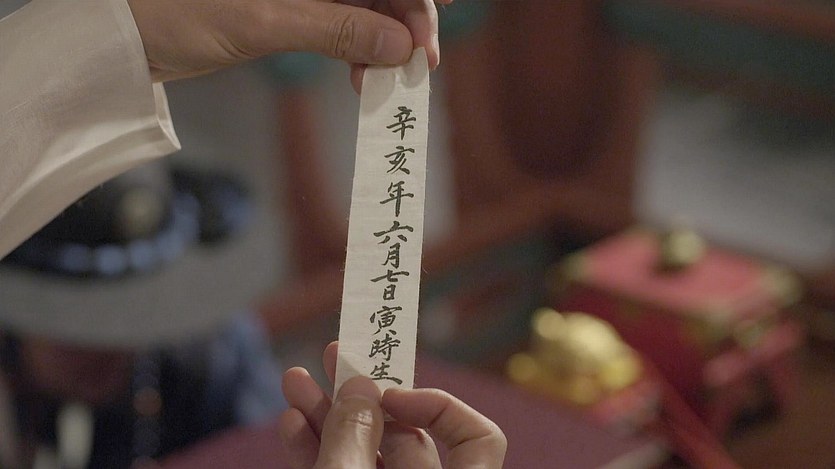 辛亥年六月七日寅時生